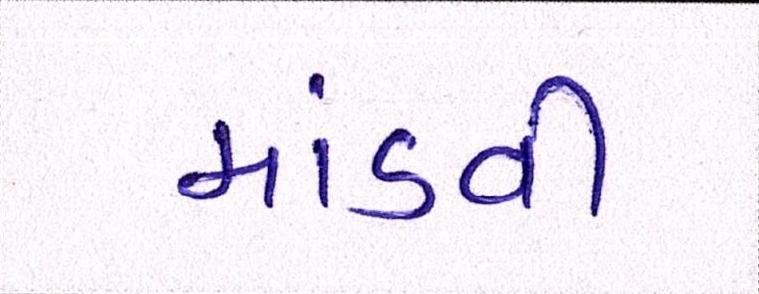 માંડવી